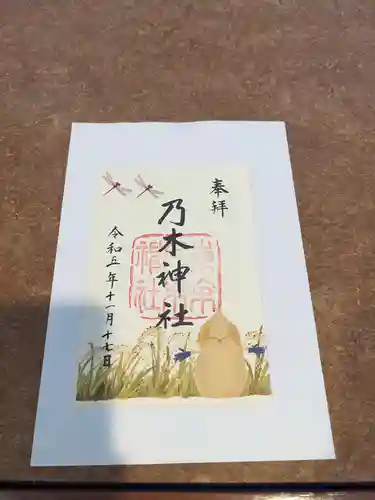 奉拝
乃木神社
令和五年十一月十七日